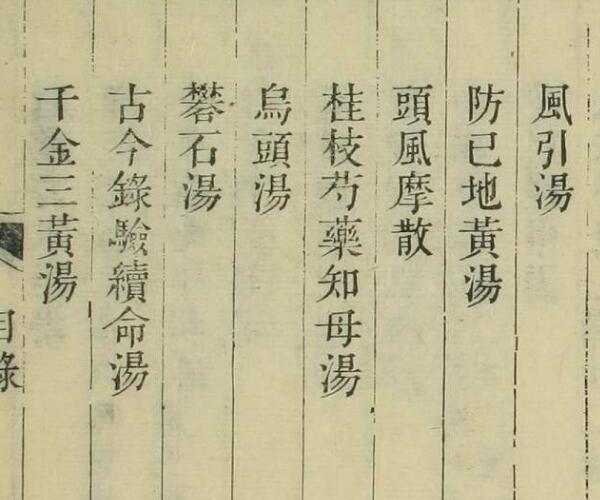 風引湯
防已地黃湯
頭風摩散
桂枝芍藥知母湯
烏頭湯
礬石湯
古今錄驗續命湯
千金三黃湯
目錄